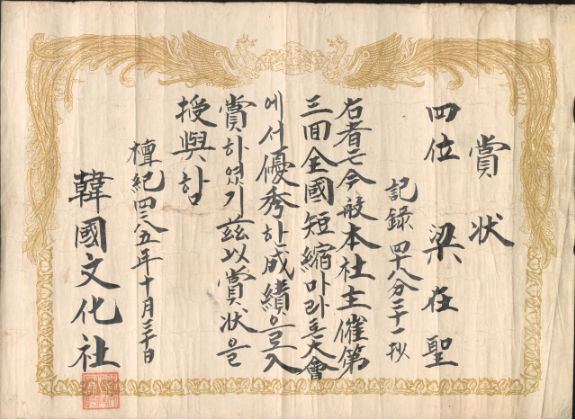 賞状
四位 梁在聖
記錄 四十八分二十一抄
右者는今般本社主催第
三回全國短縮마라톤大會
에서優秀한成績으로入
賞하였기玆以賞状을
授與함
檀紀四二八五年十月三十日
韓國文化社